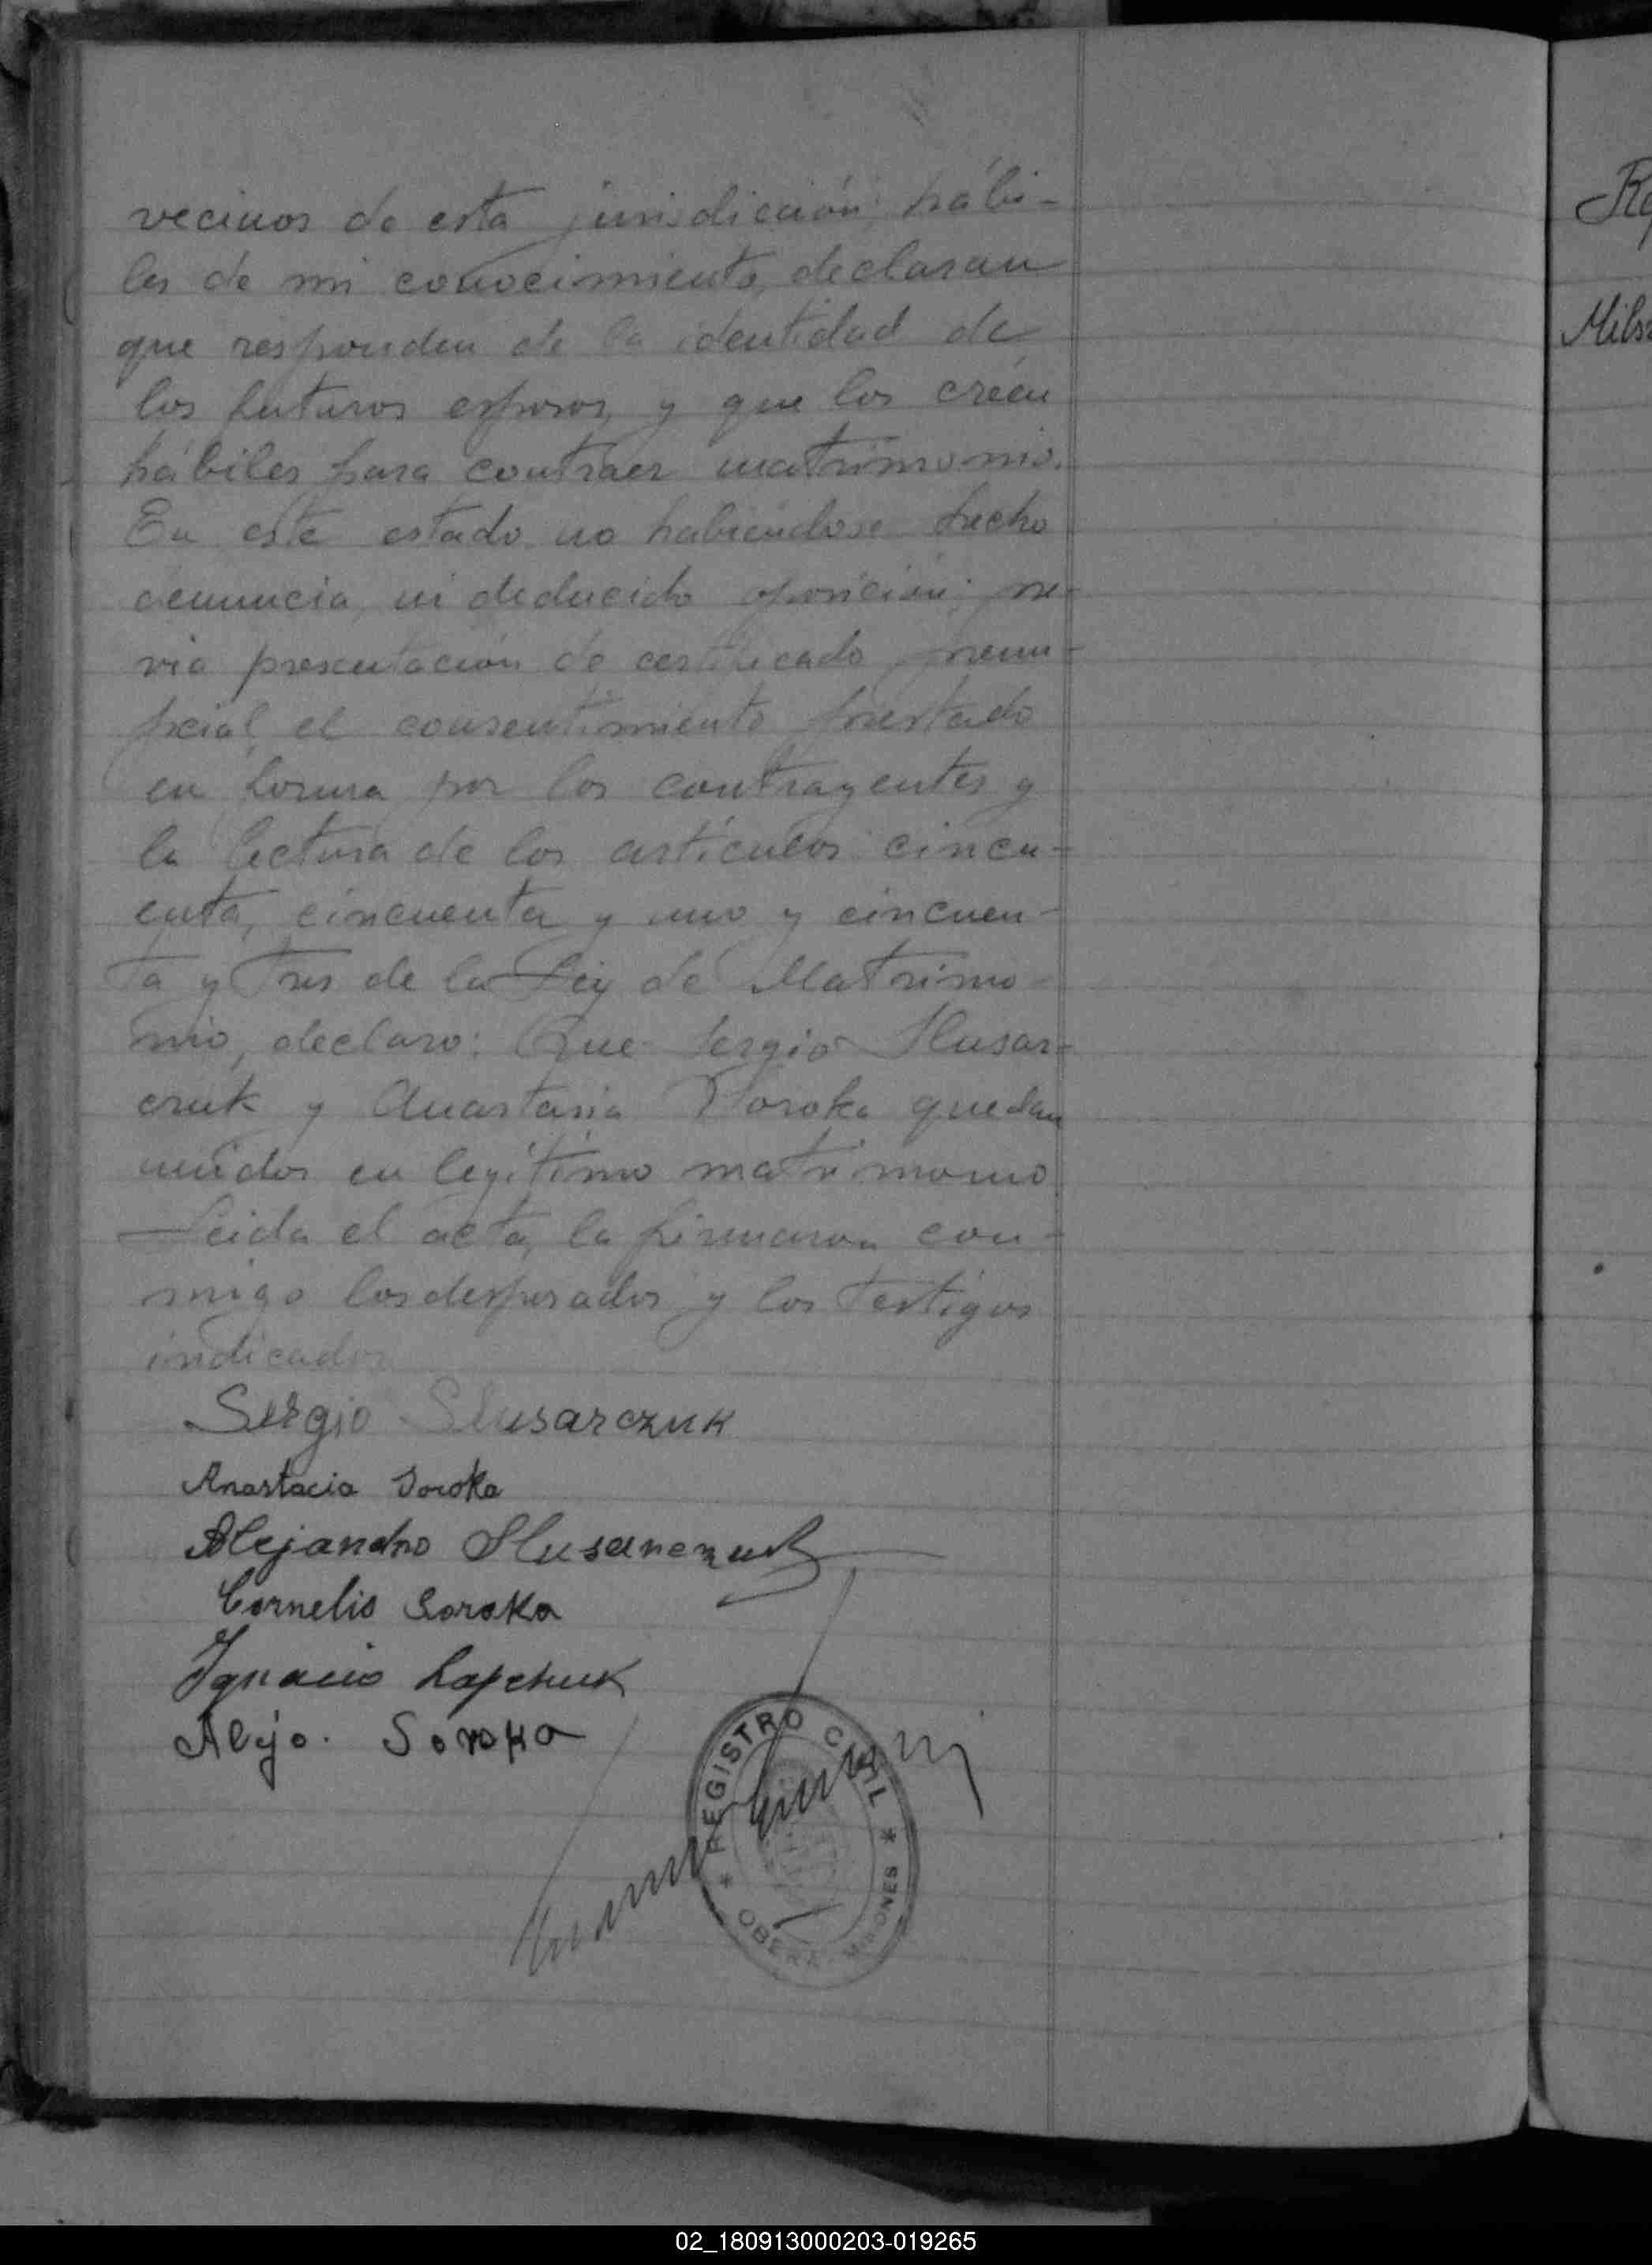 vecinos de esta jurisdicción, hábi-
les de mi conocimiento, declaran
que responden de la identidad de
los futuros esposos, y que los créen
hábiles para contraer matrimonio.
En este estado no habiéndose hecho
denuncia, ni deducido oposición; pre-
via presentación de certificado prenu-
pcial, el consentimiento prestado
en forma por los contrayentes y
la lectura de los artículos cincu-
enta, cincuenta y uno y cincuen-
ta y tres de la Ley de Matrimo-
nio, declaro: Que Sergio Slusar-
czuk y Anastasia Soroka quedan
unidos en legítimo matrimonio
Leida el acta, la firmaron con-
migo los desposados y los testigos
indicados
Sergio Slusarczuk
Anastacia Soroka
Alejandro Slusarczuk
Cornelio Soroka
Ignacio Lapchuk
Alejo. Soroka
REGISTRO CIVIL
OBERA - MISIONES
Re
Mils
02_180913000203-019265